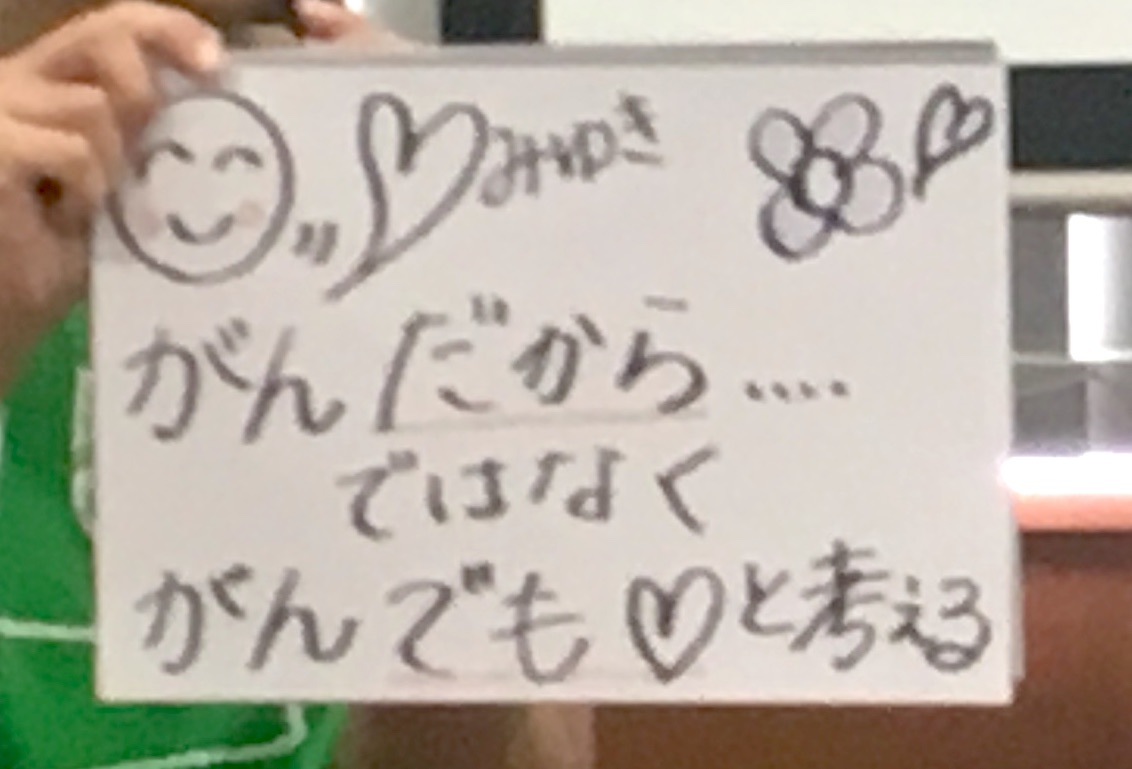 みゆき
がんだから‥‥
ではなく
がんでも♡と考える